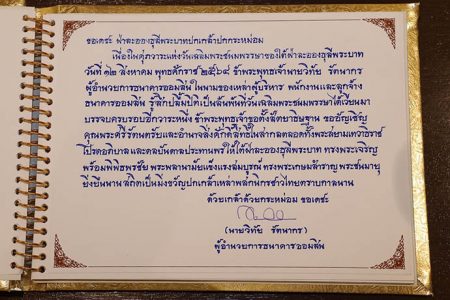 ขอเดชะ ฝ่าละอองธุลีพระบาทปกเกล้าปกกระหม่อม
เนื่องในศุภวาระแห่งวันเฉลิมพระชนมพรรษาของใต้ฝ่าละอองธุลีพระบาท
วันที่ ๑๒ สิงหาคม พุทธศักราช ๒๕๖๔ ข้าพระพุทธเจ้านายวิทัย รัตนากร
ผู้อำนวยการธนาคารออมสิน ในนามของเหล่าผู้บริหาร พนักงานและลูกจ้าง
ธนาคารออมสิน รู้สึกปลื้มปีติเป็นล้นพ้นที่วันเฉลิมพระชนมพรรษาได้เวียนมา
บรรจบครบรอบอีกวาระหนึ่ง ข้าพระพุทธเจ้าขอตั้งสัตยาธิษฐาน ขออัญเชิญ
คุณพระศรีรัตนตรัยและอำนาจสิ่งศักดิ์สิทธิ์ในสากลตลอดทั้งพระสยามเทวาธิราช
โปรดอภิบาล และดลบันดาลประทานพรให้ใต้ฝ่าละอองธุลีพระบาท ทรงพระเจริญ
พร้อมพิพิธพรชัย พระพลานามัยแข็งแรงสมบูรณ์ ทรงพระเกษมสำราญ พระชนมายุ
ยิ่งยืนนาน สถิตเป็นมิ่งขวัญปกเกล้าเหล่าพสกนิกรชาวไทยตราบกาลนาน
ด้วยเกล้าด้วยกระหม่อม ขอเดชะ
(นายวิทัย รัตนากร)
ผู้อำนวยการธนาคารออมสิน